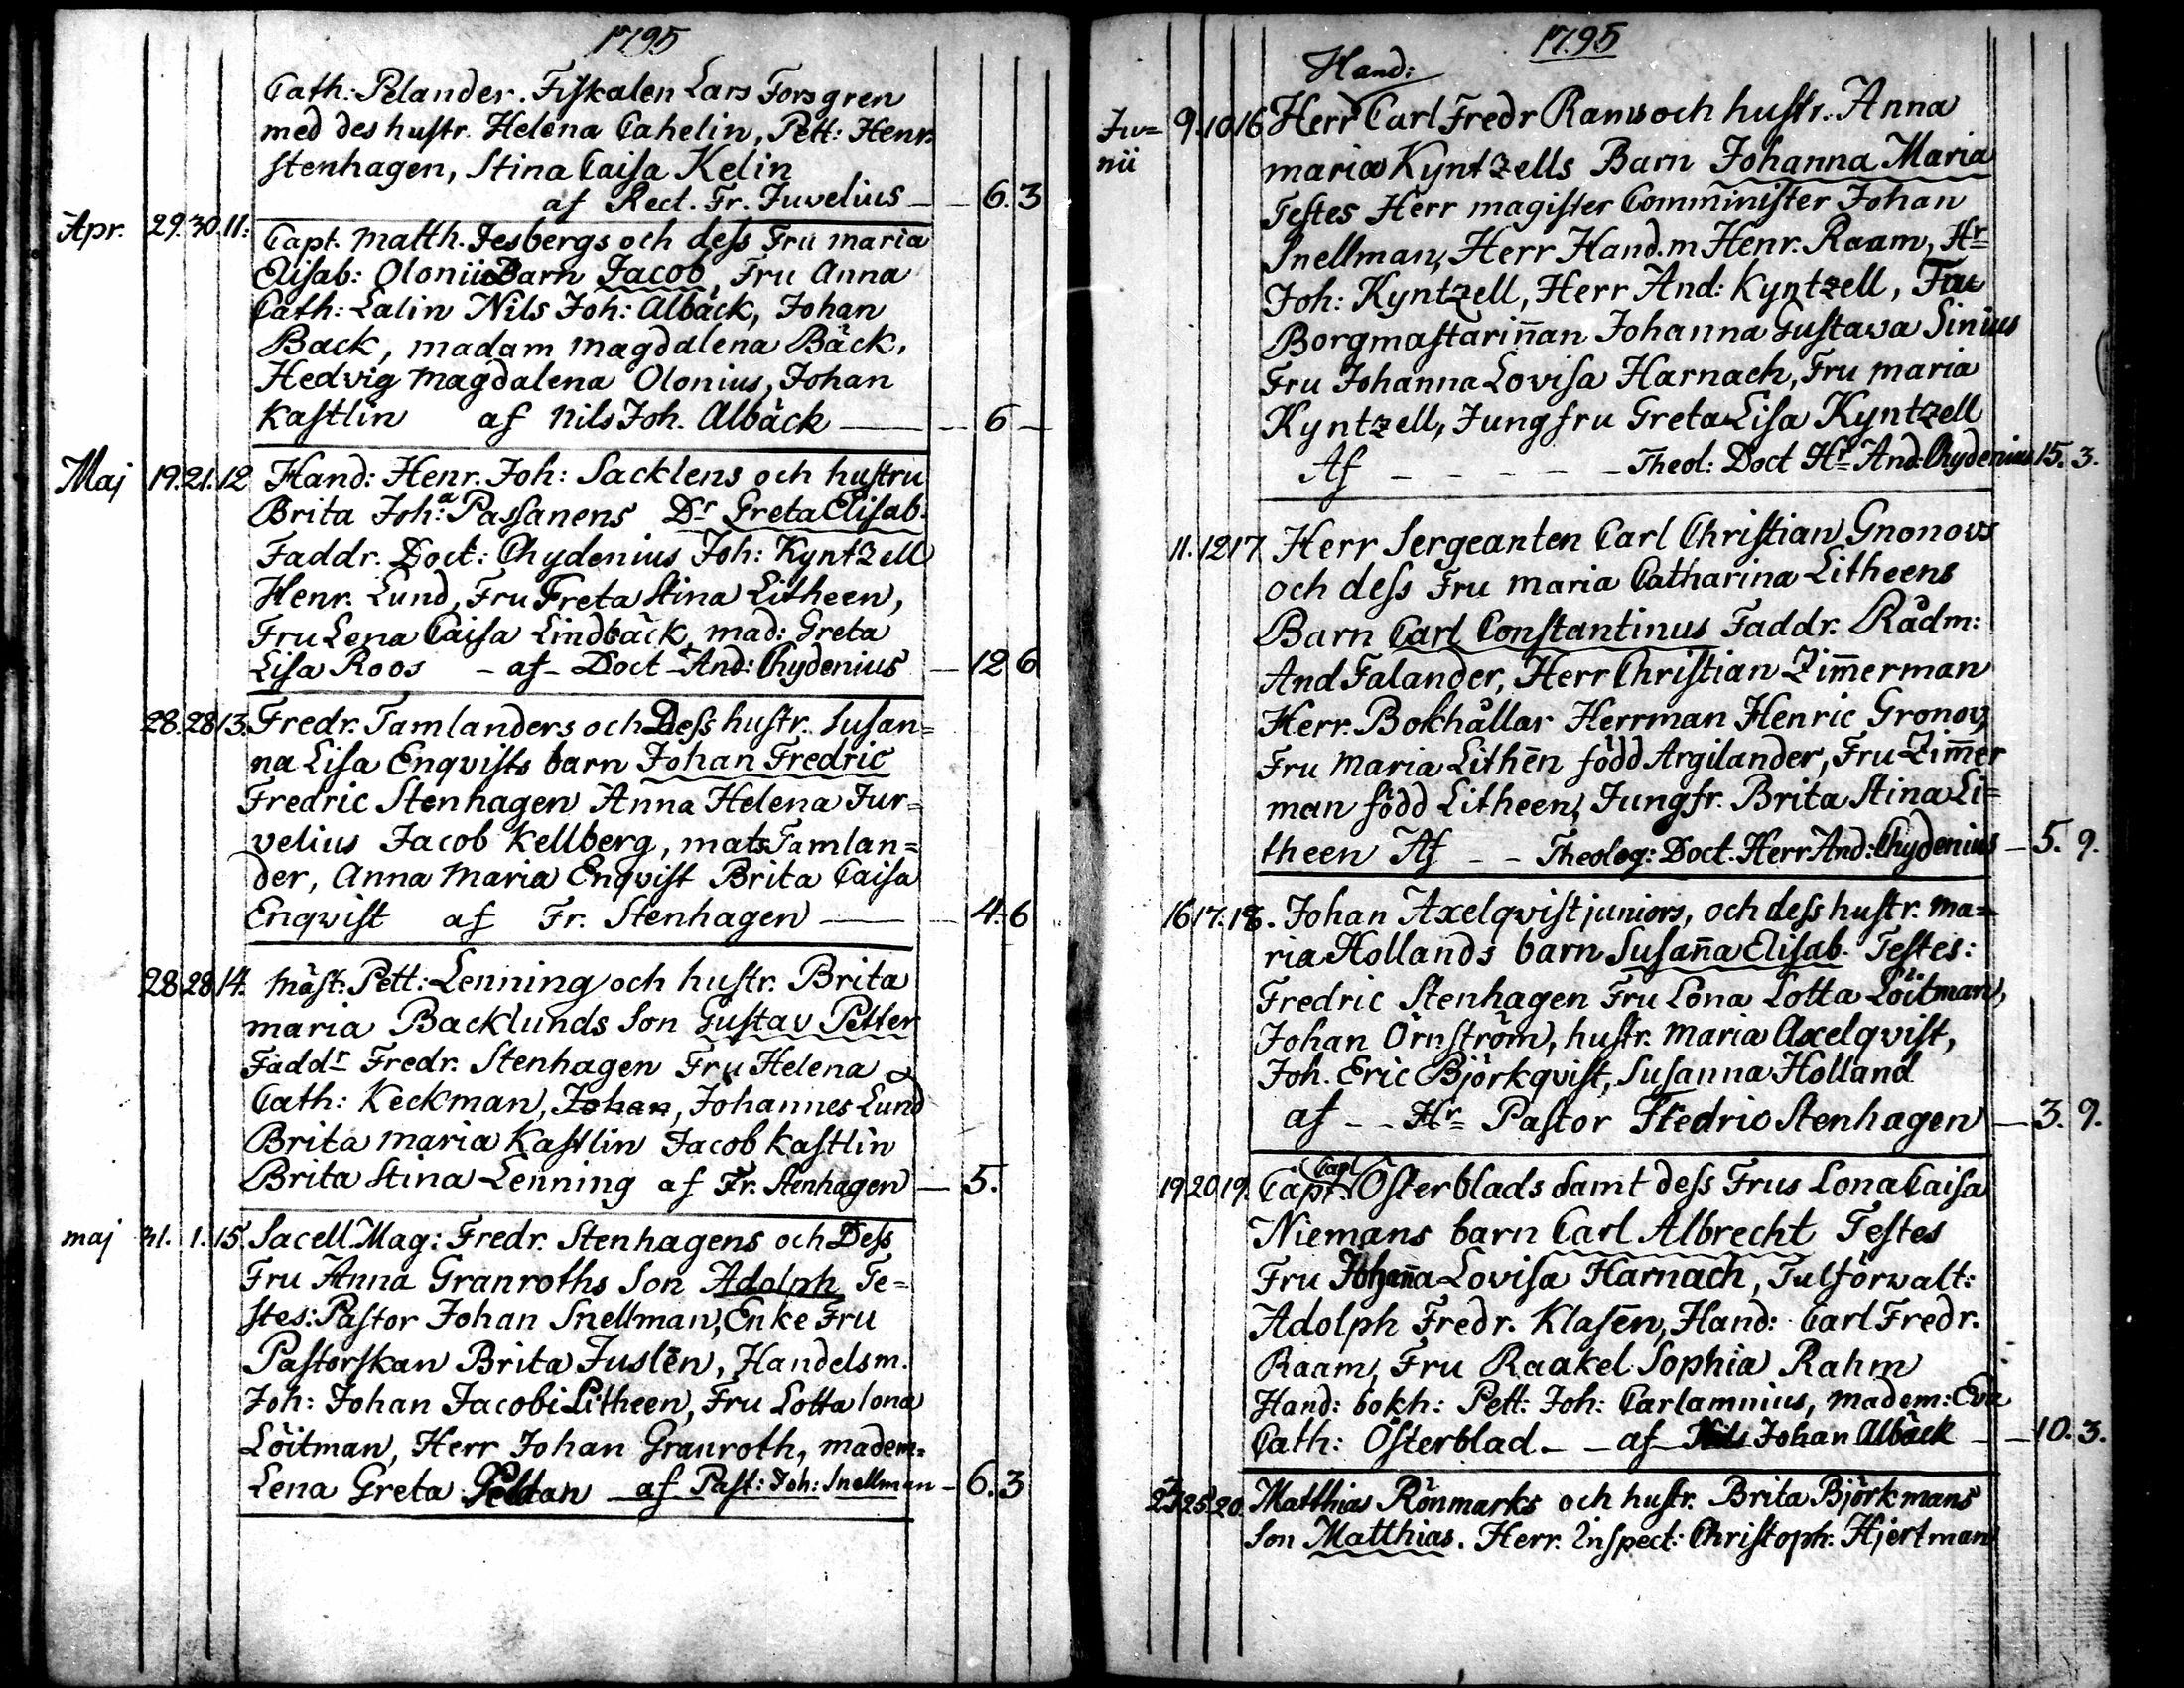 1795
Cath: Pelander. Fiskalen Lars Forsgren
med des hustr. Helena Cahelin, Pett: Henr.
Stenhagen, Stina Caisa Kelin
af Rect. Fr. Juvelius — 6. 3
Apr. 29. 30. 11. Capt. Matth. Jesbergs och dess Fru maria
Elisab: Olonii Barn Jacob, Fru Anna
Cath: Lalin Nils Joh: Albäck, Johan
Back, madam Magdalena Bäck,
Hedvig Magdalena Olonius, Johan
Kastlin af Nils Joh. Albäck — 6 —
Maj 19. 21. 12 Hand: Henr. Joh: Sacklens och hustru
Brita Joh:a Passanens Dr Greta Elisab.
Faddr. Doct: Chydenius Joh: Kyntzell
Henr. Lund, Fru Freta Stina Litheen,
Fru Lena Caisa Lindbäck, mad: Greta
Lisa Roos – af – Doct And: Chydenius — 12 6
28. 28 13. Fredr. Tamlanders och Dess hustr. Susan=
na Lisa Enqvists barn Johan Fredric
Fredric Stenhagen Anna Helena Jur=
velius Jacob Kellberg, mats Tamlan=
der, Anna Maria Enqvist Brita Caisa
Enqvist af Fr. Stenhagen — 4. 6
28 28 14. Mäst. Pett: Lenning och hustr. Brita
maria Backlunds Son Gustav Petter
Faddr Fredr. Stenhagen Fru Helena
Cath: Keckman, Johan, Johannes Lund
Brita maria Kastlin Jacob Kastlin
Brita Stina Lenning af Fr. Stenhagen — 5.
maj 31. 1. 15. Sacell. Mag: Fredr. Stenhagens och Dess
Fru Anna Granroths Son Adolph Te=
stes: Pastor Johan Snellman, Enke Fru
Pastorskan Brita Juslén, Handelsm.
Joh: Johan Jacobi Litheen, Fru Lotta lona
Löitman, Herr Johan Granroth, madem=
Lena Greta Peldan af Past: Joh: Snellman — 6. 3
1795
Hand:
Ju= 9. 10 16 Herr Carl Fredr Rams och hustr. Anna
nii maria Kyntzells Barn Johanna Maria
Testes Herr magister Comminister Johan
Snellman, Herr Hand.m Henr. Raam, Hr=
Joh: Kyntzell, Herr And: Kyntzell, Fru
Borgmastarin̄an Johanna Gustava Sinius
Fru Johanna Lovisa Harnach, Fru maria
Kyntzell, Jungfru Greta Lisa Kyntzell
Af – – – – – Theol: Doct Hr And: Chydenius 15. 3.
11. 12 17 Herr Sergeanten Carl Christian Gnonovs
och dess Fru maria Catharina Litheens
Barn Carl Constantinus Faddr. Rådm:
And Falander, Herr Christian Zim̄erman
Herr. Bokhållar Herrman Henric Gronov,
Fru Maria Lithēn född Argilander, Fru Zim̄er
man född Litheen, Jungfr. Brita Stina Li=
theen Af – – Theolog: Doct. Herr And: Chydenius — 5. 9.
16 17. 18. Johan Axelqvist juniors, och dess hustr. ma=
ria Hollands barn Susan̄a Elisab. Testes:
Fredric Stenhagen Fru Lona Lotta Löitman,
Johan Örnström, hustr. Maria Axelqvist,
Joh. Eric Björkqvist, Susanna Holland
af – – Hr= Pastor Fredric Stenhagen — 3. 9.
Capl
19 20 19. Capt. Österblads samt dess Frus Lona Caisa
Niemans barn Carl Albrecht Testes
Fru Johan̄a Lovisa Harnach, Tulförwalt:
Adolph Fredr. Klasēn, Hand: Carl Fredr.
Raam, Fru Raakel Sophia Rahm
Hand: bokh: Pett: Joh: Carlamnius, madem: Eva
Cath: Österblad – – af Nils Johan Albäck — 10. 3.
25 20. Matthias Rönmarks och hustr. Brita Björkmans
Son Matthias. Herr. Inspect: Christoph: Hjertman